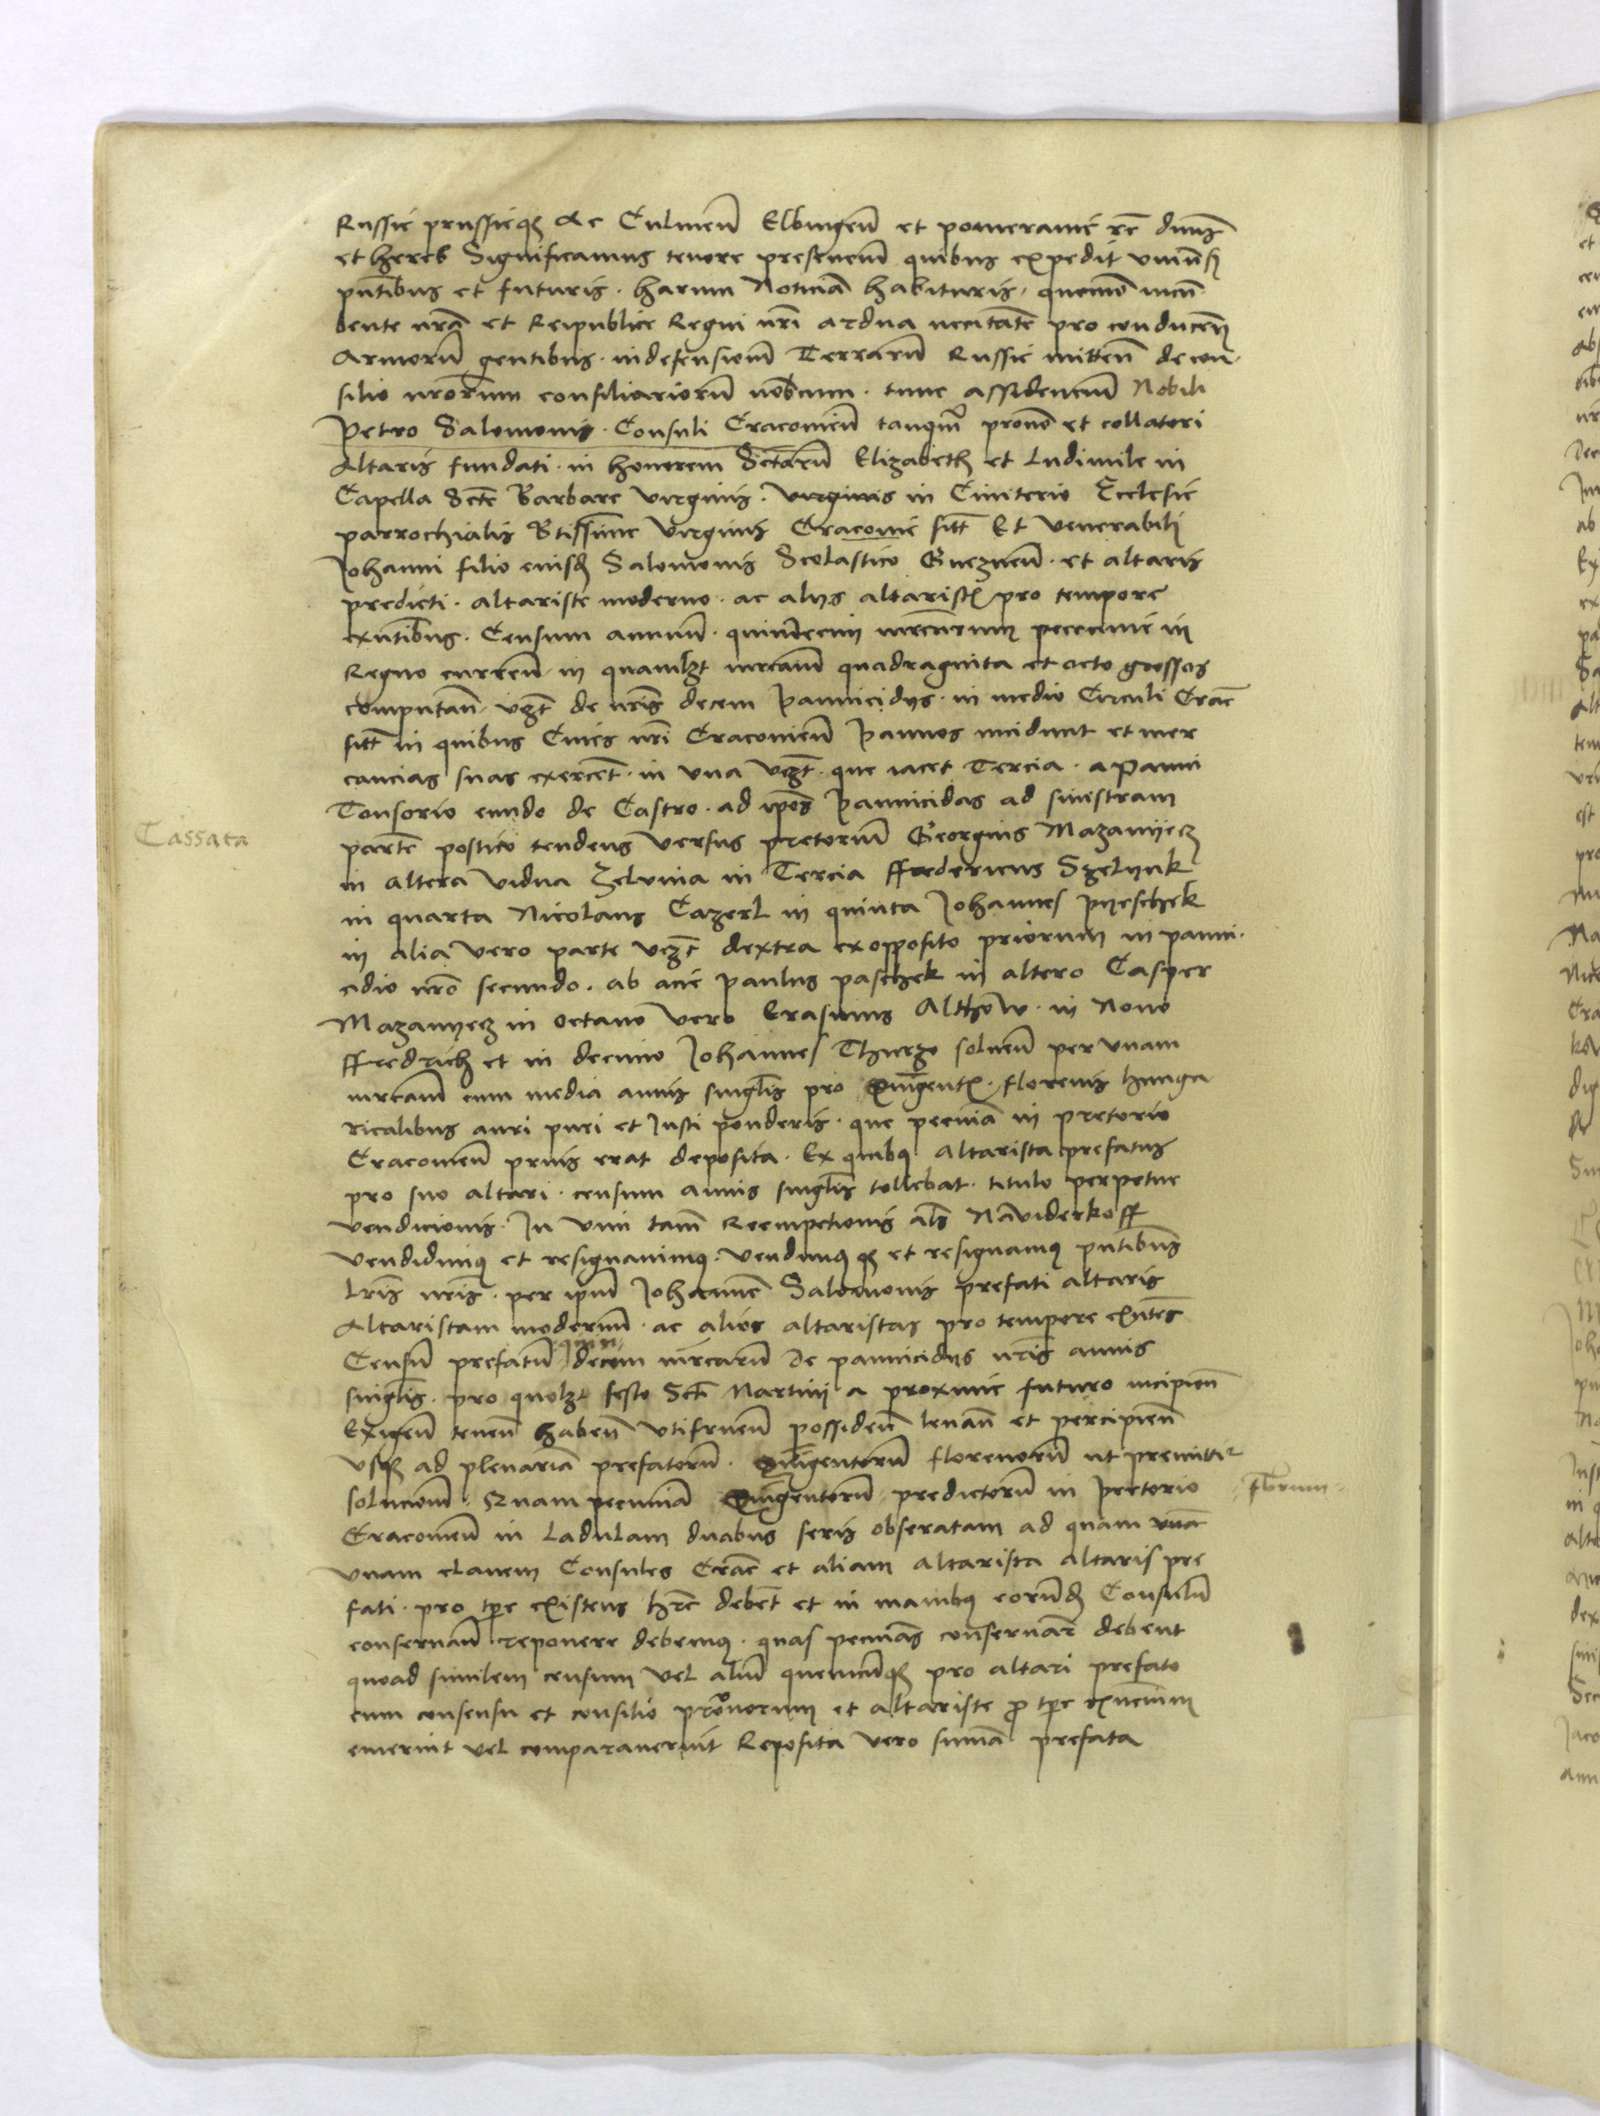 Russie prussieq3 Ac Culmen̄ Elbingen̄ et pomeranie rc̄ dnus
et heres Significamus tenore presencium̄ quibus expedit vniūsis
pn̄tibus et futuris · harum Noticiā habituris · quomō incum
bente nrā et Reipublice Regni nrī ardua necitate pro conducen̄
Armorū gentibus · in defensionem̄ Terrarū Russie mitten̄ de con
silio nrōrum consiliariorū nobscum · tunc assidencium̄ Nobili
Petro Salomonis · Consuli Cracouien̄ tanqm̄ prono et collatori
Altaris fundati · in honorem Sctārū Elizabeth et Ludimile in
Capella Sctē Barbare virginis · virginis in Cimiterio Ecclesie
parrochialis Btissime virginis Cracouie sitt̄ Et venerabili
Johanni filio eiusd̄ Salomonis Scolastico Gneznen̄ · et altaris
predicti · altariste moderno · ac alijs altaristis pro tempore
exn̄tibus · Censum annuū · quindecim mrcarum pecunie in
Regno curren̄ in quamlz̄t mrcam̄ quadraginta et octo grossos
computan̄ · vz̄t de nrīs decem pannicidijs · in medio Circuli Crac̄
sitt̄ in quibus Ciues nrī Cracouien̄ pannos incidunt et mer
cancias suas exercent̄ · in vna vz̄t · que iacet Tercia · a panni
Tonsorio eundo de Castro · ad ipōs pannicidas ad sinistram
partē postico tendens versus pretorium̄ Georgius Mazanyecz
Cassata
in altera vidua Zelvina in Tercia ffredericus Sgelynk
in quarta Nicolaus Cazerl in quinta Johannes Pyeschek
in alia vero parte vz̄t dextra ex opposito priorum in panni
cidio nrō secundo · ab acie Paulus paschek in altero Casper
Mazanyecz in octauo vero Erasmus Althow · in Nono
ffredrich et in decimo Johannes Thurzo soluen̄ per vnam
mrcam̄ cum media annis singlis pro Quīgentis · florenis hunga
ricalibus auri puri et Justi ponderis · que pecunia in pretorio
Cracouien̄ prius erat deposita · Ex quibus Altarista prefatus
pro suo altari · censum annis singlis tollebat · titulo perpetue
vendicionis · In vim tam̄ Reempcionis als̄ Nāviderkoff
vendidimus et resignauimus · vendimus q3 et resignamus pn̄tibus
Lrīs nrīs · per ipm̄ Johannē Salomonis prefati altaris
Altaristam modernū · ac alios altaristas pro tempore exn̄tes
Censū prefatū quin decem mrcarū de pannicidijs nrīs annis
singlis · pro quolz̄t festo Sctī Martini · a proxime futuro incipien̄
Exigen̄ tenen̄ haben̄ vtifruen̄ possiden̄ leuan̄ et percipien̄
vsq3 ad plenariā prefatorū · Quīgentorū florenorū ut premittir
solucionem̄ · Quam pecuniā Quīgentorū predictorū in pretorio
florenorum
Cracouien̄ in Ladulam duabus seris obseratam ad quam vnā
vnam clauem Consules Crac̄ et aliam altarista altaris pre
fati · pro tpe existens hrē debet̄ et in manibus eorund̄ Consulū
conseruan̄ reponere debemus · quas pecunias conseruare debent
quoad similem censum vel aliū quemcūq3 pro altari prefato
cum consensu et consilio pronorum et altariste p̄ tpe exn̄cium
emerint vel comparauerint Reposita vero suma prefata